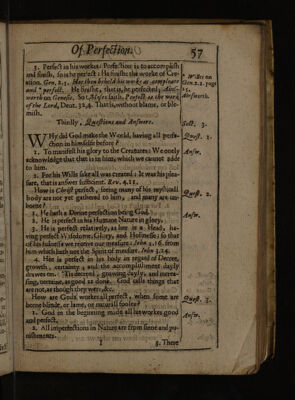 Of Perfection.
57
3. Perfect in his workes: Perfection is to accomplish
and finish, so is he perfect: He finisht the worke of Cre-
ation. Gen. 2.2. Hee then beheld his work as compleate
and perfect. He finisht, that is, he perfected; Ains-
worth on Genesis. So Moses saith, Perfect is the work
of the Lord, Deut. 32.4. That is, without blame, or ble-
mish.
on
Gen. 2.2. page
Ainsworth.
Thirdly, Questions and Answers.
Sect. 3.
WHy did God make the World, having all perfe-
ction in himselfe before?
Quest. 1.
1. To manifest his glory to the Creatures: We onely
acknowledge that that is in him, which we cannot adde
to him.
Answ.
2. For his Wills sake all was created: It was his plea-
sure, that is answer sufficient. Rev. 4.11.
How is Christ perfect, seeing many of his mysticall
body are not yet gathered to him, and many are un-
borne?
Quest. 2.
1. He hath a Divine perfection being God.
2. He is perfect in his Humane Nature in glory.
Answ.
3. He is perfect relatively, as he is a Head, ha-
ving perfect Wisdome, Glory, and Holinesse; so that
of his fulnesse we receive our measure: John 1.16. from
him which hath not the Spirit of measure. John 3.34.
4. Hee is perfect in his body in regard of Decree,
growth, certainty; and the accomplishment dayly
drawes on. 'Tis decreed, growing dayly, and increa-
sing, certaine, as good as done. God calls things that
are not, as though they were, &c.
How are Gods workes all perfect, when some are
borne blinde, or lame, or naturall fooles?
Quest. 3.
1. God in the beginning made all his workes good
and perfect.
Answ.
2. All imperfections in Nature are from sinne and pu-
nishments.
I
3. There